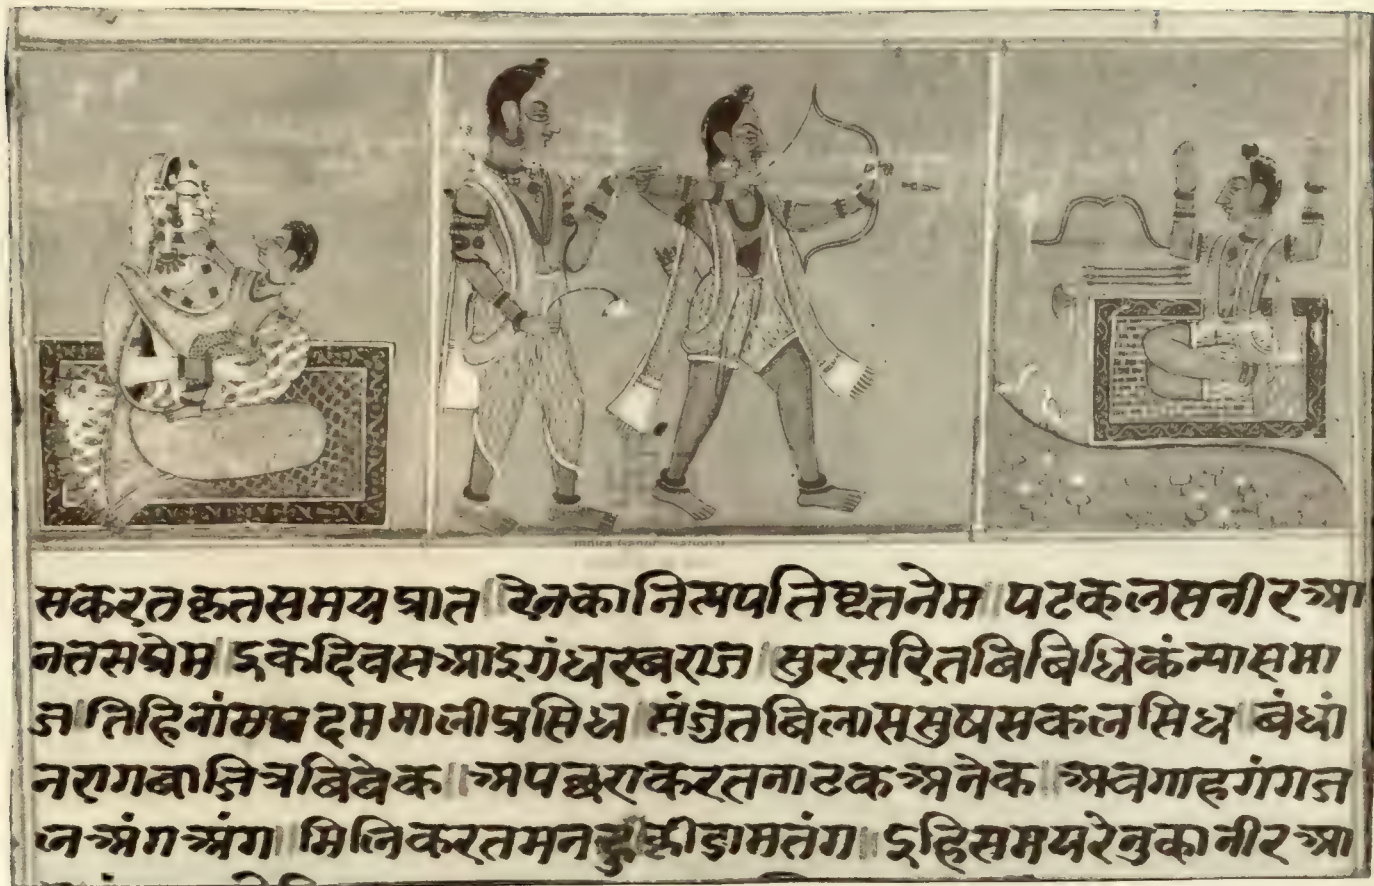 सकरतक्रतसमयप्रात ॥ रेनकानित्यपतिव्रतनेम ॥ पटकलसनीरआ
नतसप्रेम ॥ इकदिवसआइगंधरबराज ॥ सुरसरितबिबिधिकंन्यासमा
ज ॥ तिहिनांमपदममालीप्रसिध ॥ संजुतबिलाससुषसकलसिध ॥ बंधां
नरागबाजित्रबिबेक ॥ अपछराकरतनाटकअनेक ॥ अवगाहगंगज
लअंगअंग ॥ मिलिकरतमनहुक्रीडामतंग ॥ इहिसमयरेनुकानीरआ